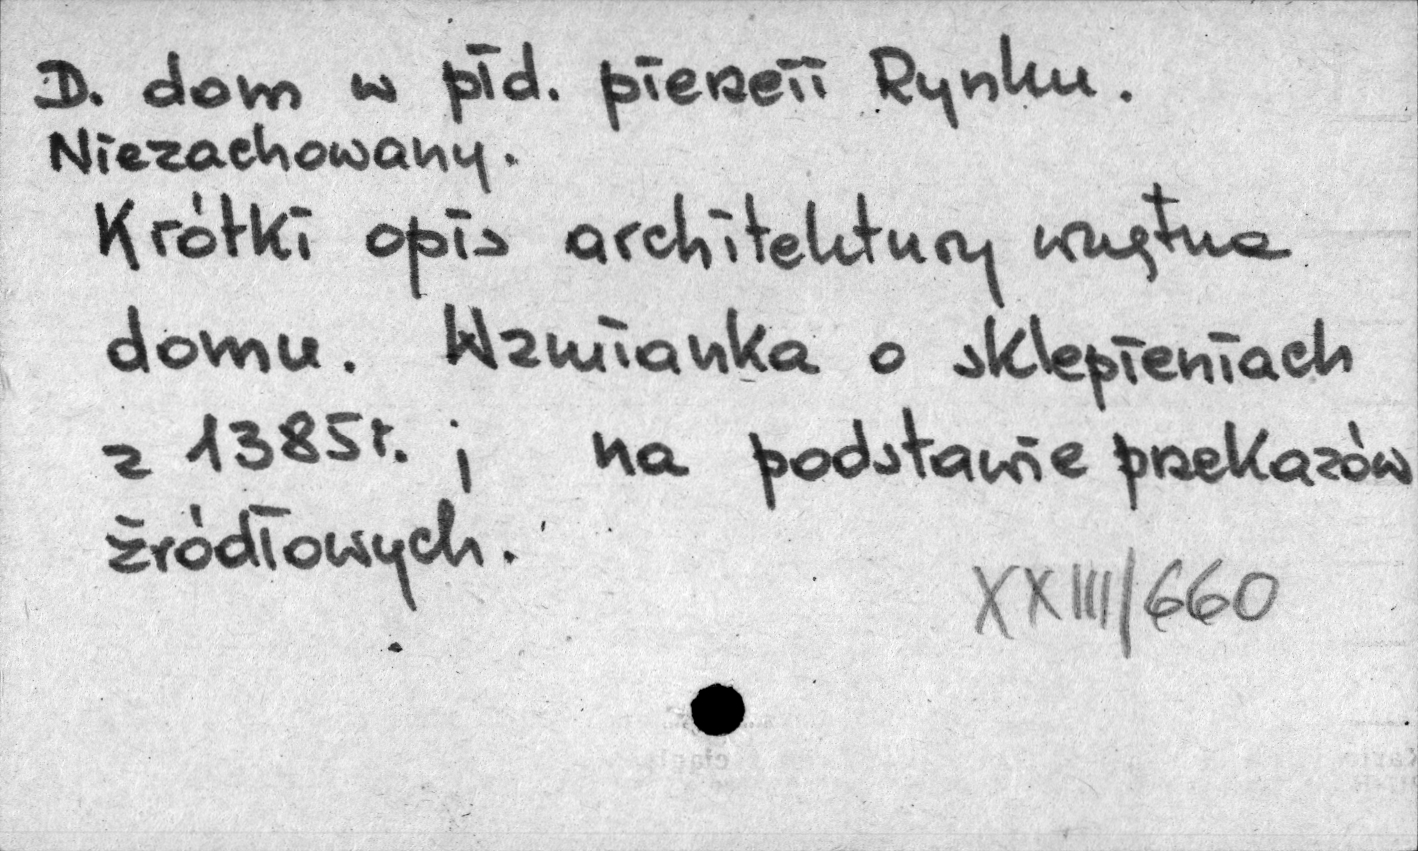 D. dom w płd. pierzeii Rynku.
Niezachowany.
Krótki opis architektury wnętrza
domu. Wzmianka o sklepieniach
z 1385r. ; na podstawie przekazów
źródłowych.
XXIII/660